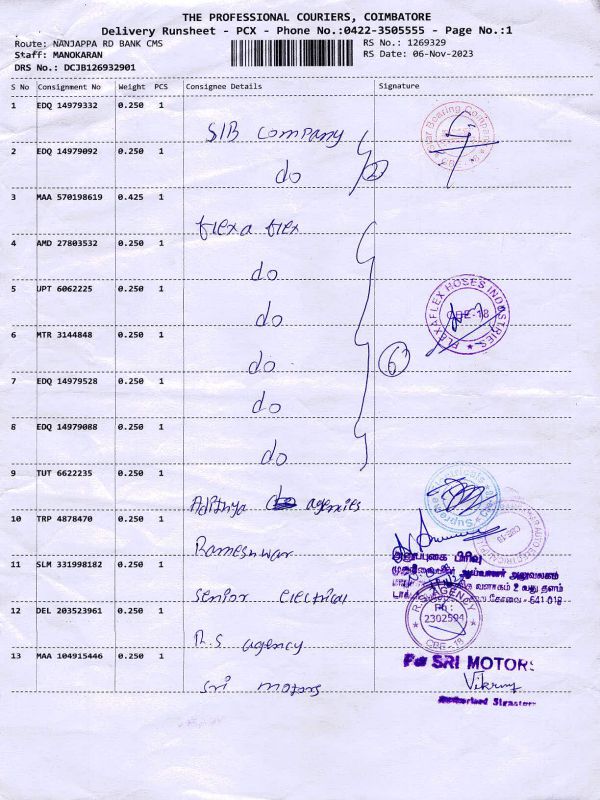 THE PROFESSIONAL COURIERS, COIMBATORE
Delivery Runsheet - PCX - Phone No.:0422-3505555 - Page No.:1
Route: NANJAPPA RD BANK CMS
RS No.: 1269329
Staff: MANOKARAN
RS Date: 06-Nov-2023
DRS No.: DCJB126932901
S No Consignment No Weight PCS Consignee Details Signature
1 EDQ 14979332 0.250 1
SIB company
Star Bearing Company
2 EDQ 14979092 0.250 1
do
2
3 MAA 570198619 0.425 1
flexa flex
4 AMD 27803532 0.250 1
do
5 UPT 6062225 0.250 1
do
FLAXAFLEX HOSES INDUSTRIES
CBE-18
6 MTR 3144848 0.250 1
do
6
7 EDQ 14979528 0.250 1
do
8 EDQ 14979088 0.250 1
do
9 TUT 6622235 0.250 1
Adithya agencies
10 TRP 4878470 0.250 1
Rameshwar
அனுப்புகை பிரிவு
11 SLM 331998182 0.250 1
ஆய்வாளர் அலுவலகம்
வளாகம் 2 வது தளம்
கோவை - 641 018
Senior electrical
12 DEL 203523961 0.250 1
R.S. AGENCY
Ph :
2302594
CBE - 18
R.S agency
13 MAA 104915446 0.250 1
For SRI MOTORS
Sri motors
Authorised Signatory